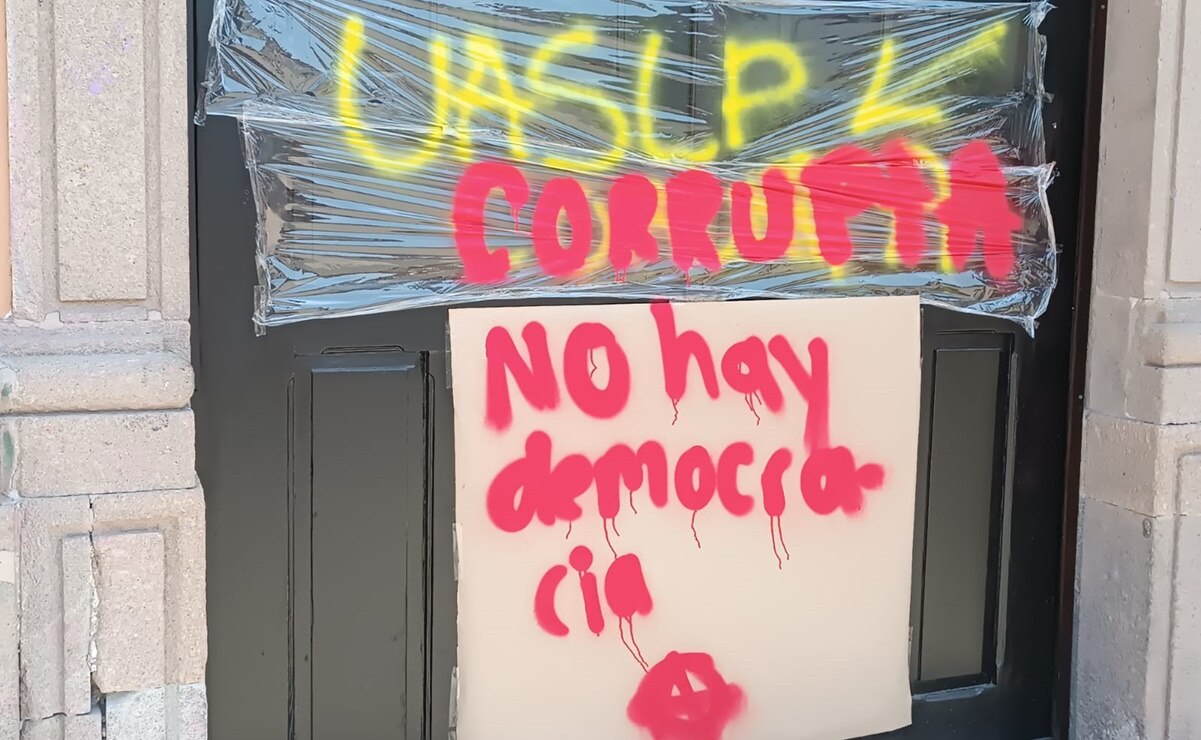 UASLP
CORRUPTA
No hay
democra-
cia